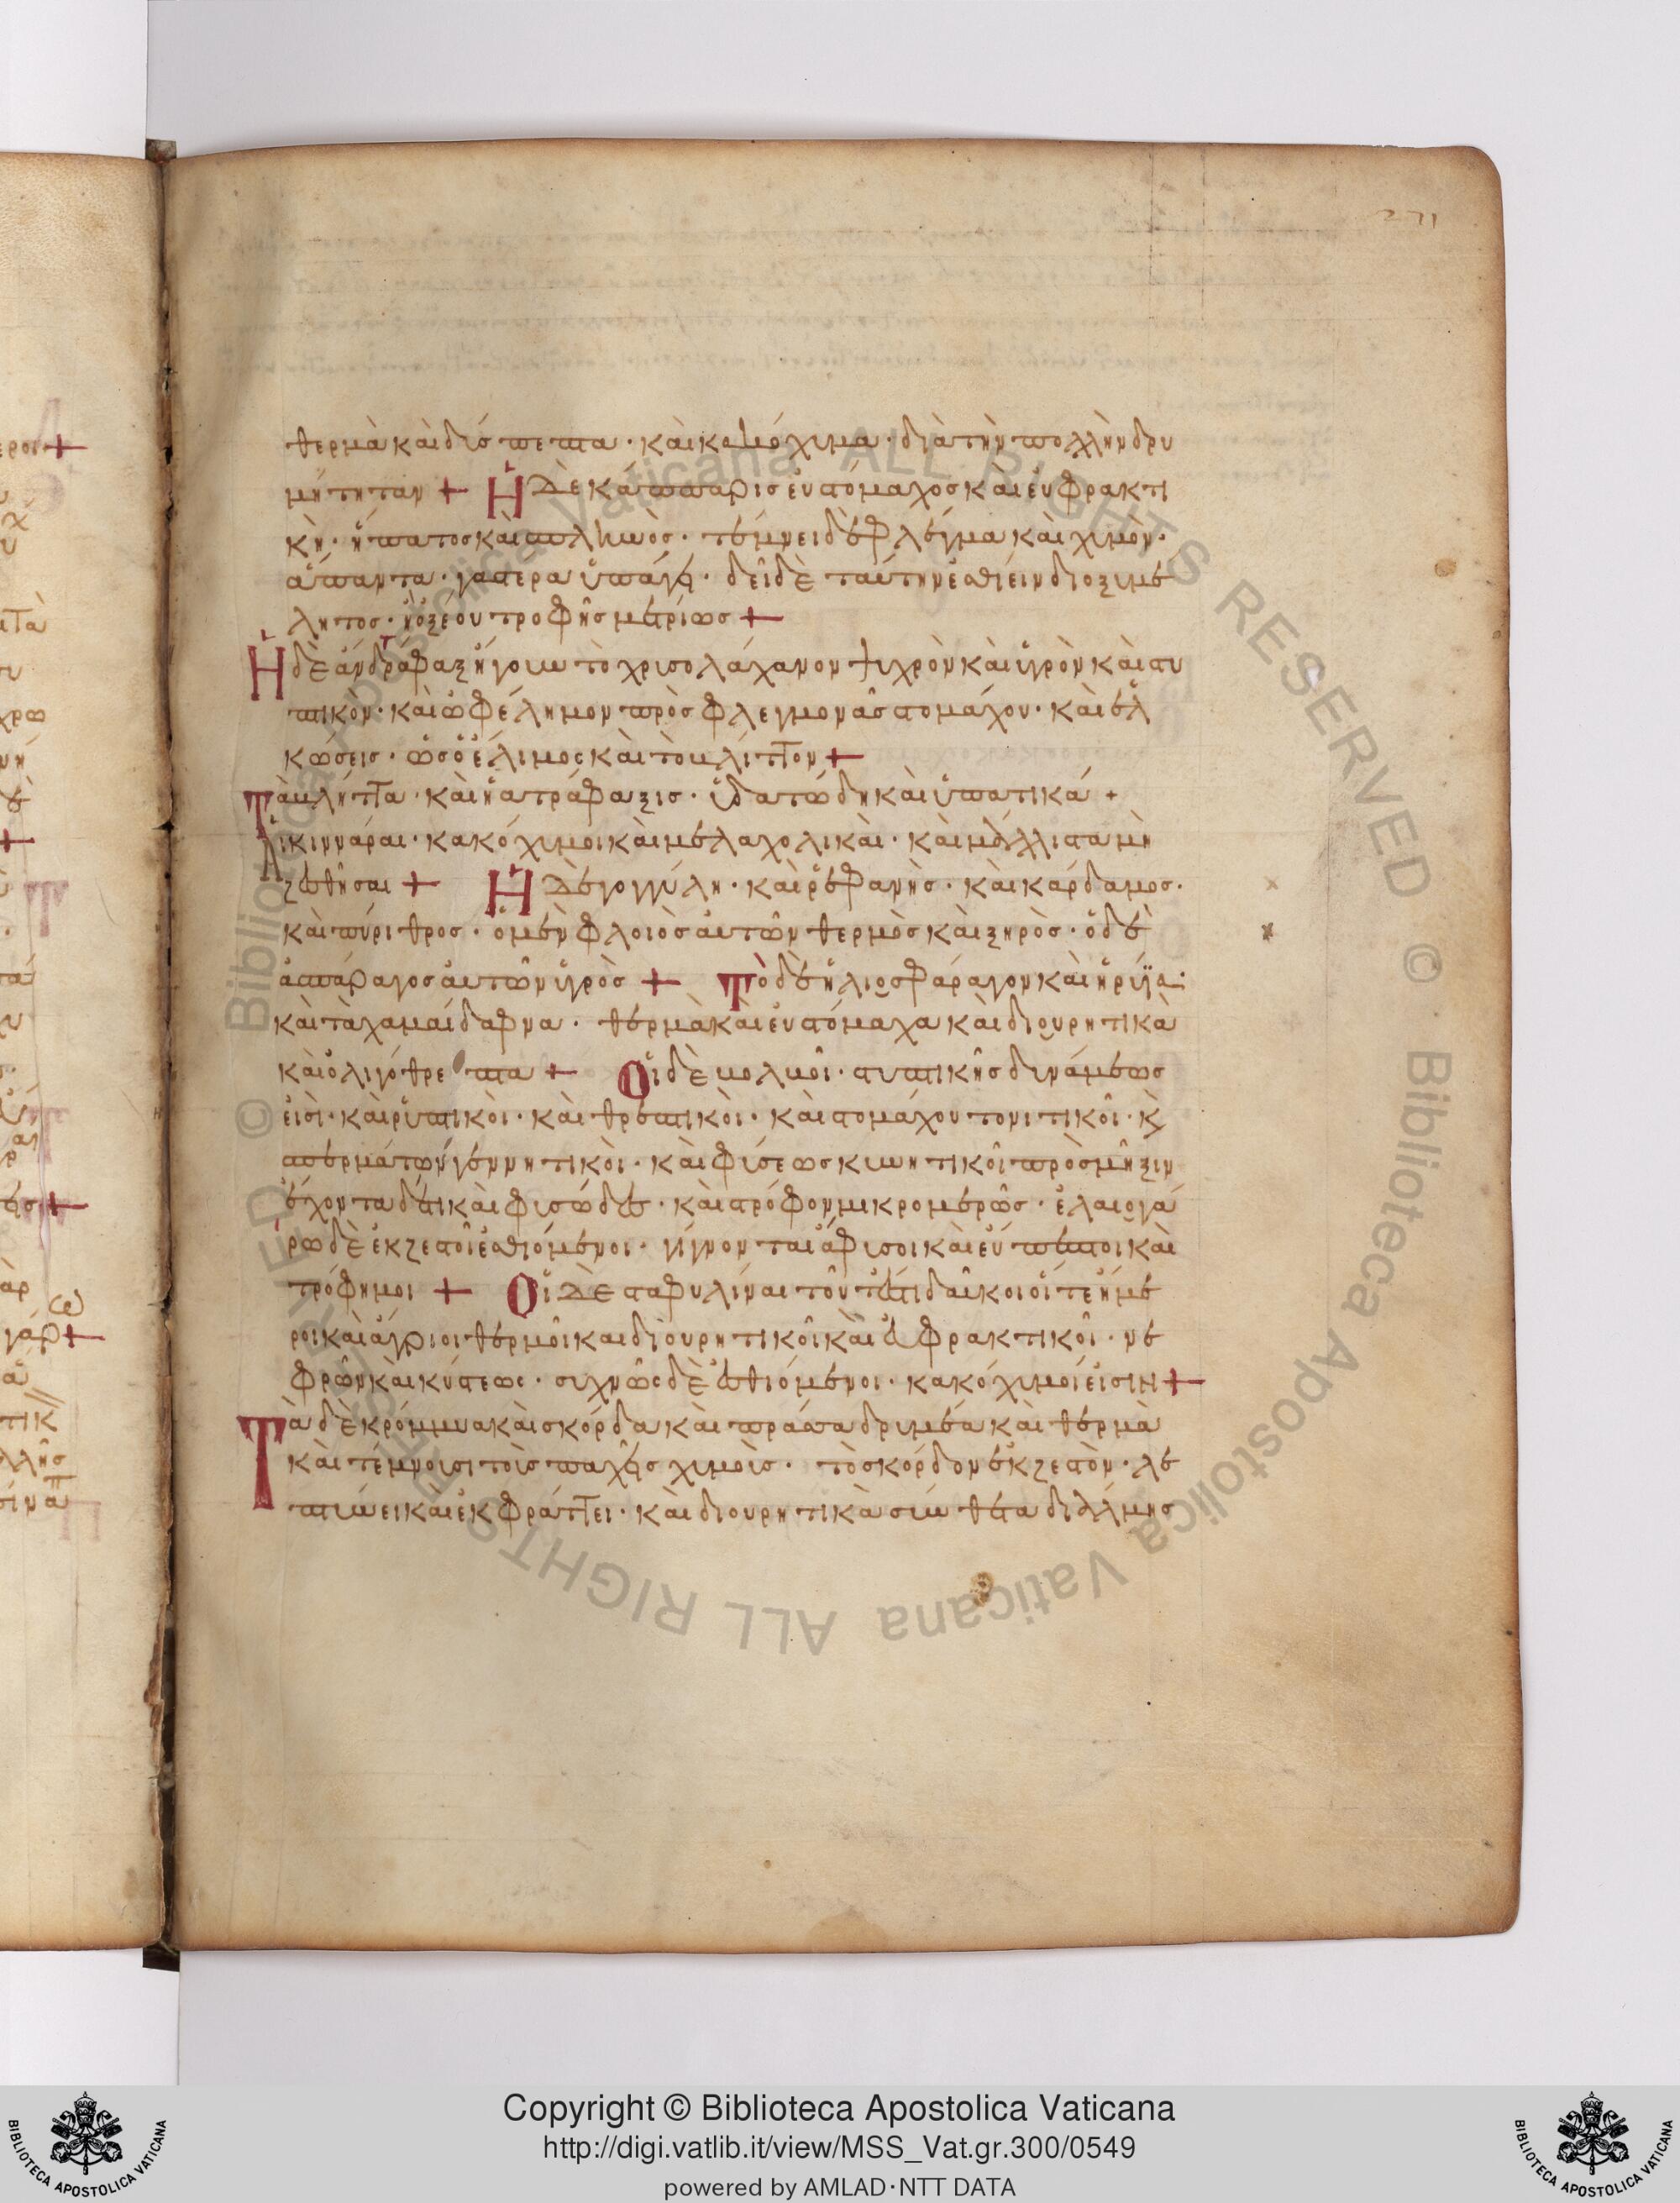 271
θερμὰ καὶ δύσπεπτα · καὶ κακόχιμα · διὰ τὴν πολλὴν δρυ
μήτηταν + Ἡ δὲ κάππαρις εὐστόμαχος καὶ ἐνφρακτι
κὴ · ἥπατος καὶ σπληνὸς · τέμνει δὲ φλέγμα καὶ χιμὸν ·
ἅπαντα · γαστέρα ὑπάγει · δεῖ δὲ ταύτην ἐσθίειν δι ὀξιμέ
λητος · ἢ ὄξεου τροφῆς μετρίως +
Ἡ δὲ ἀνδράφαξ ἤγουν τὸ χρισολάχανον ψιχρὸν καὶ ὑγρὸν καὶ στυ
πτικὸν · καὶ ὠφέλημον πρὸς φλεγμονὰς στομάχου · καὶ ἑλ
κώσεις · ὡσοέλιμος καὶ τὸ βλίττον +
Τὰ βλήττα · καὶ ἡ ἀτράφαξις · ὑδατώδη καὶ ὑπατικά +
Ἁι κιννάραι · κακόχιμοι καὶ μελαχολικαὶ · καὶ μάλλιστα μὴ
ζεσθῆσαι + Ἡ δὲ γογγύλη · καὶ ῥέφανὴς · καὶ κάρδαμος ·
καὶ πύριθρος · ὁ μὲν φλοιὸς αὐτῶν θερμὸς καὶ ξηρὸς · ὁ δὲ
ἀσπάραγος αὐτῶν ὑγρὸς + Τὸ δὲ ἡλιοσφάραγον καὶ ἡ ρύϊα ·
καὶ τὰ χαμαίδαφνα · θερμὰ καὶ εὐστόμαχα καὶ διουρητικὰ
καὶ ὀλιγόθρεπτα + Οἱ δὲ βολβοῖ · στυπτικῆς δυνάμεως
εἰσὶ · καὶ ῥυπτικὸι · καὶ θρεπτικὸι · καὶ στομάχου τονιτικοῖ · κὲ
σπερμάτων γεννητικὸι · καὶ φίσεως κινητικοῖ πρὸς μῆξιν
ἔχοντα δέ τι καὶ φισῶδες · καὶ στρόφον μικρομερῶς · ἐλαιογά
ρω δὲ ἐκζεστοῖ ἐσθιόμενοι · γίγνονται ἄφισοι καὶ εὔπεπτοι καὶ
τρόφημοι + Οἱ δὲ σταφυλίναι τοῦτέστι δαῦκοι οἵ τε ἥμε
ροι καὶ ἄγριοι θερμοῖ και διουρητικοῖ καὶ ἐκφρακτικοῖ · νε
φρῶν καὶ κύστεως · συχνῶς δὲ ἐσθιόμενοι · κακόχιμοί εἰσιν +
Τὰ δὲ κρόμμυα καὶ σκόρδα καὶ πράσα δριμέα καὶ θερμὰ
καὶ τέμνουσι τοῖς παχεῖς χιμοὶς · τὸ σκόρδον ἐκζεστὸν · λε
πτύνει καὶ ἐκφράττει · καὶ διουρητικὰ σιν
Copyright © Biblioteca Apostolica Vaticana
http://digi.vatlib.it/view/MSS_Vat.gr.300/0549
powered by AMLAD·NTT DATA
BIBLIOTECA APOSTOLICA VATICANA
BIBLIOTECA APOSTOLICA VATICANA
© Biblioteca Apostolica Vaticana ALL RIGHTS RESERVED © Biblioteca Apostolica Vaticana ALL RIGHTS RESERVED